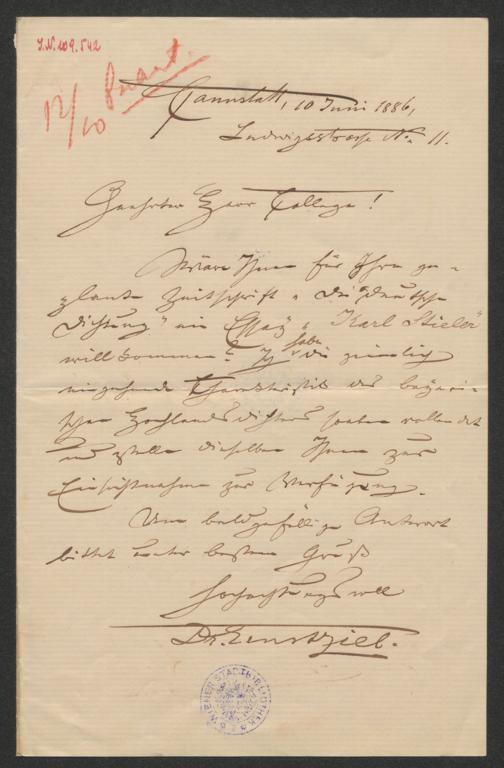 J.N. 109.542
12/10
Cannstatt, 10 Juni 1886,
Ludwigsstrasse No. 11.
Geehrter Herr College!
Wäre Ihnen für Ihre ge-
plante Zeitschrift „Die deutsche
Dichtung" ein Essay „Karl Stieler"
willkommen? Ich habe die ziemlich
eingehende Charakteristik des bayeri-
schen Hochlandsdichters soeben vollendet
und stelle dieselbe Ihnen zur
Einsichtnahme zur Verfügung.
Um baldgefällige Antwort
bittet unter bestem Gruß
Hochachtungsvoll
Dr. Ernst Ziel.
WIENER STADTBIBLIOTHEK